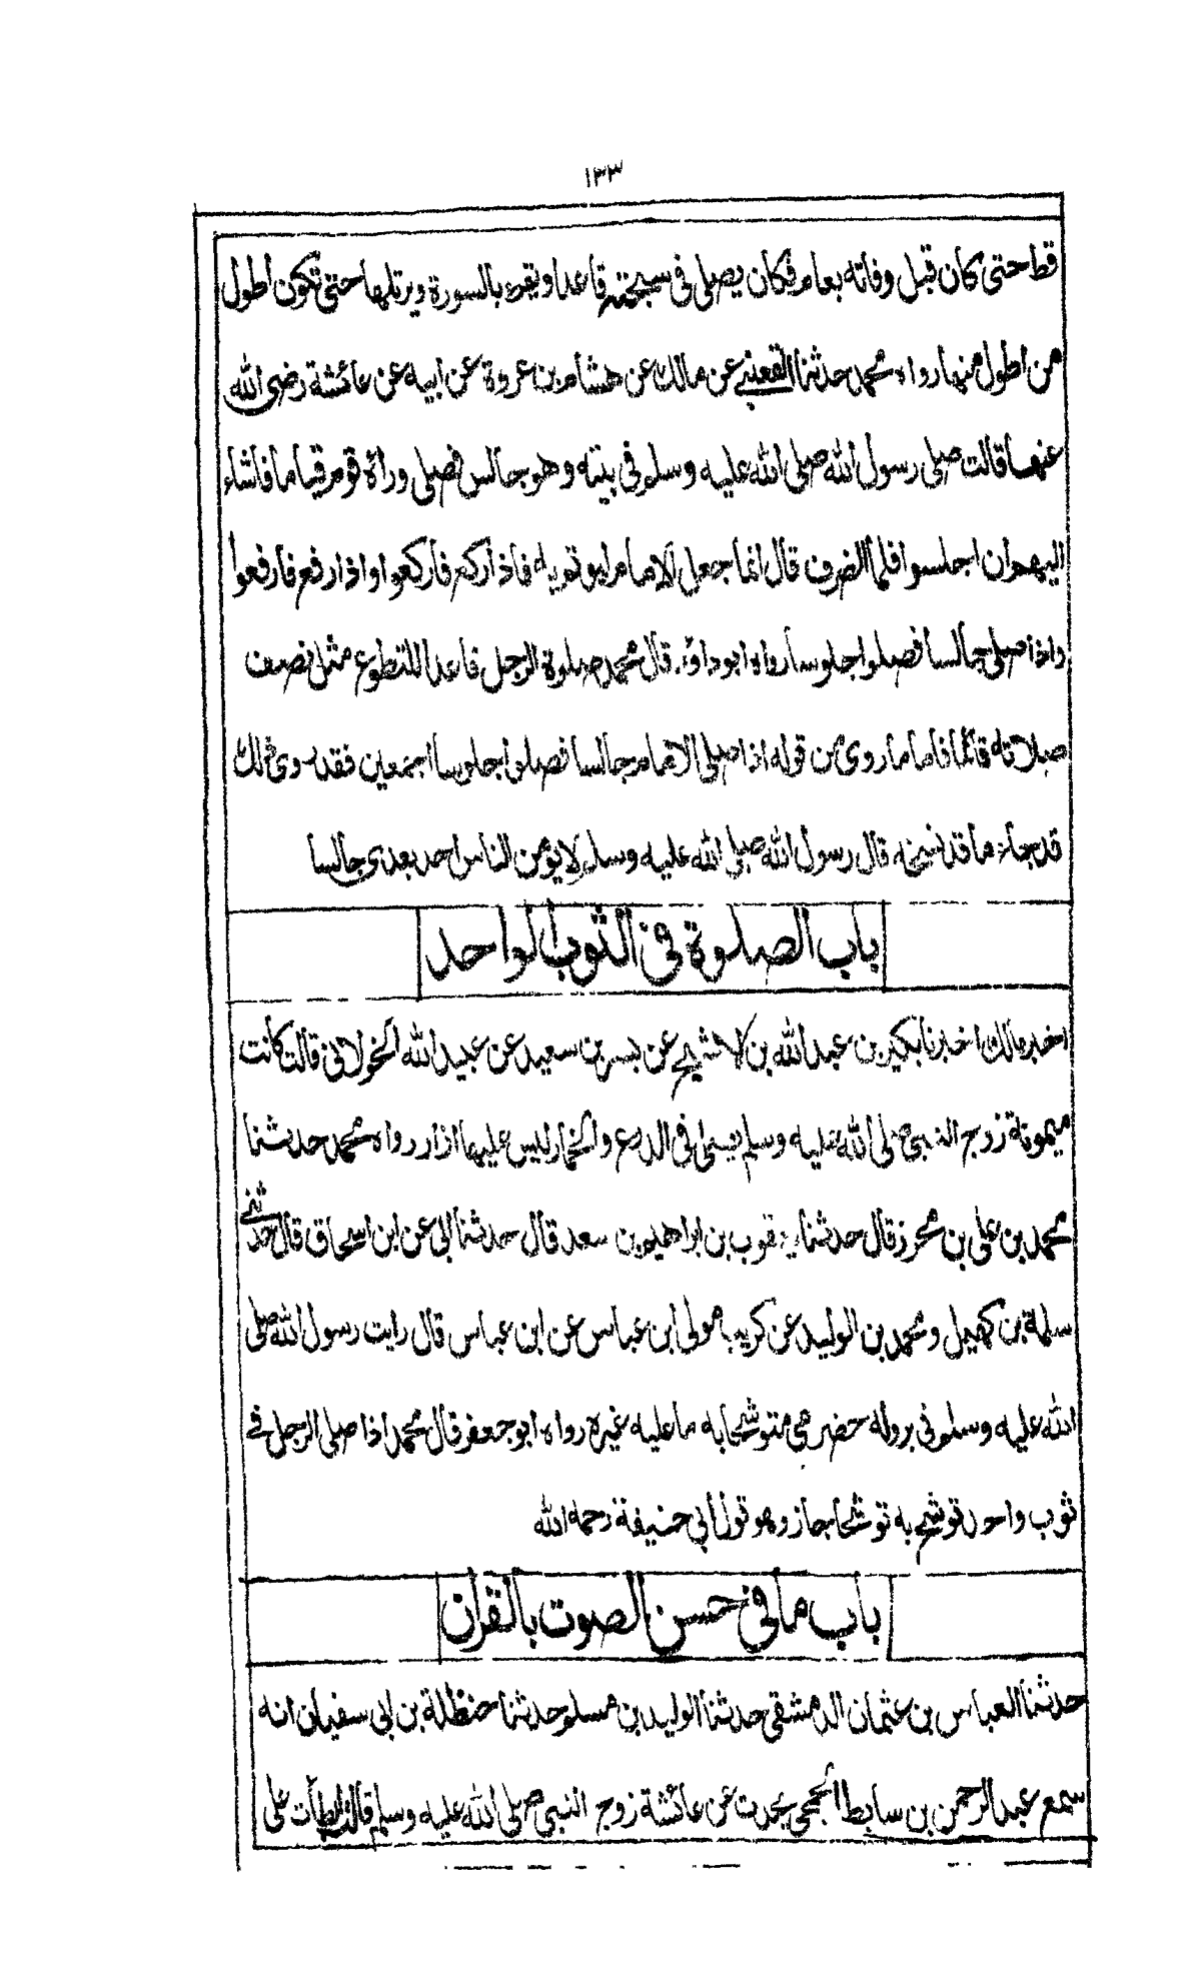 ١٣٣
قط حتى كان قبل وفاته بعام فكان يصلى فى سبحته قاعدا ويقرء بالسورة ويرتلها حتى تكون اطول
من اطول منها رواه محمد حدثنا القعنبى عن مالك عن هشام بن عروة عن ابيه عن عائشة رضى الله
عنها قالت صلى رسول الله صلى الله عليه وسلم فى بيته وهو جالس فصلى وراءه قوم قياما فاشاء
اليهم ان اجلسوا فلما انصرف قال انما جعل الامام ليوتم به فاذا ركع فاركعوا واذا رفع فارفعوا
واذا صلى جالسا فصلوا جلوسا رواه ابو داؤد قال محمد صلوة الرجل قاعدا للتطوع مثل نصف
صلاته قائما فاما ما روى من قوله اذا صلى الامام جالسا فصلوا جلوسا اجمعين فقد روى ذلك
قد جاء ما قد نسخه قال رسول الله صلى الله عليه وسلم لا يؤمن الناس احد بعدى جالسا
باب الصلوة فى الثوب الواحد
اخبر مالك اخبرنا بكير بن عبد الله بن الاشج عن بسر بن سعيد عن عبيد الله الخولانى قالت كانت
ميمونة زوج النبى صلى الله عليه وسلم يصلى فى الدرع والخمار ليس عليها ازار رواه محمد حدثنا
محمد بن على بن محرز قال حدثنا يعقوب بن ابراهيم بن سعد قال حدثنا ابى عن ابن اسحاق قال حدثنى
سلمة بن كهيل ومحمد بن الوليد عن كريب مولى ابن عباس عن ابن عباس قال رايت رسول الله صلى
الله عليه وسلم فى برد له حضرمى متوشحا به ما عليه غيره رواه ابو جعفر قال محمد اذا صلى الرجل فى
ثوب واحد توشح به توشحا جاز وهو قول ابى حنيفة رحمه الله
باب ما فى حسن الصوت بالقرآن
حدثنا العباس بن عثمان الدمشقى حدثنا الوليد بن مسلم حدثنا حنظلة بن ابى سفيان انه
سمع عبد الرحمن بن سابط الجمحى يحدث عن عائشة زوج النبى صلى الله عليه وسلم قالت ابطأت على